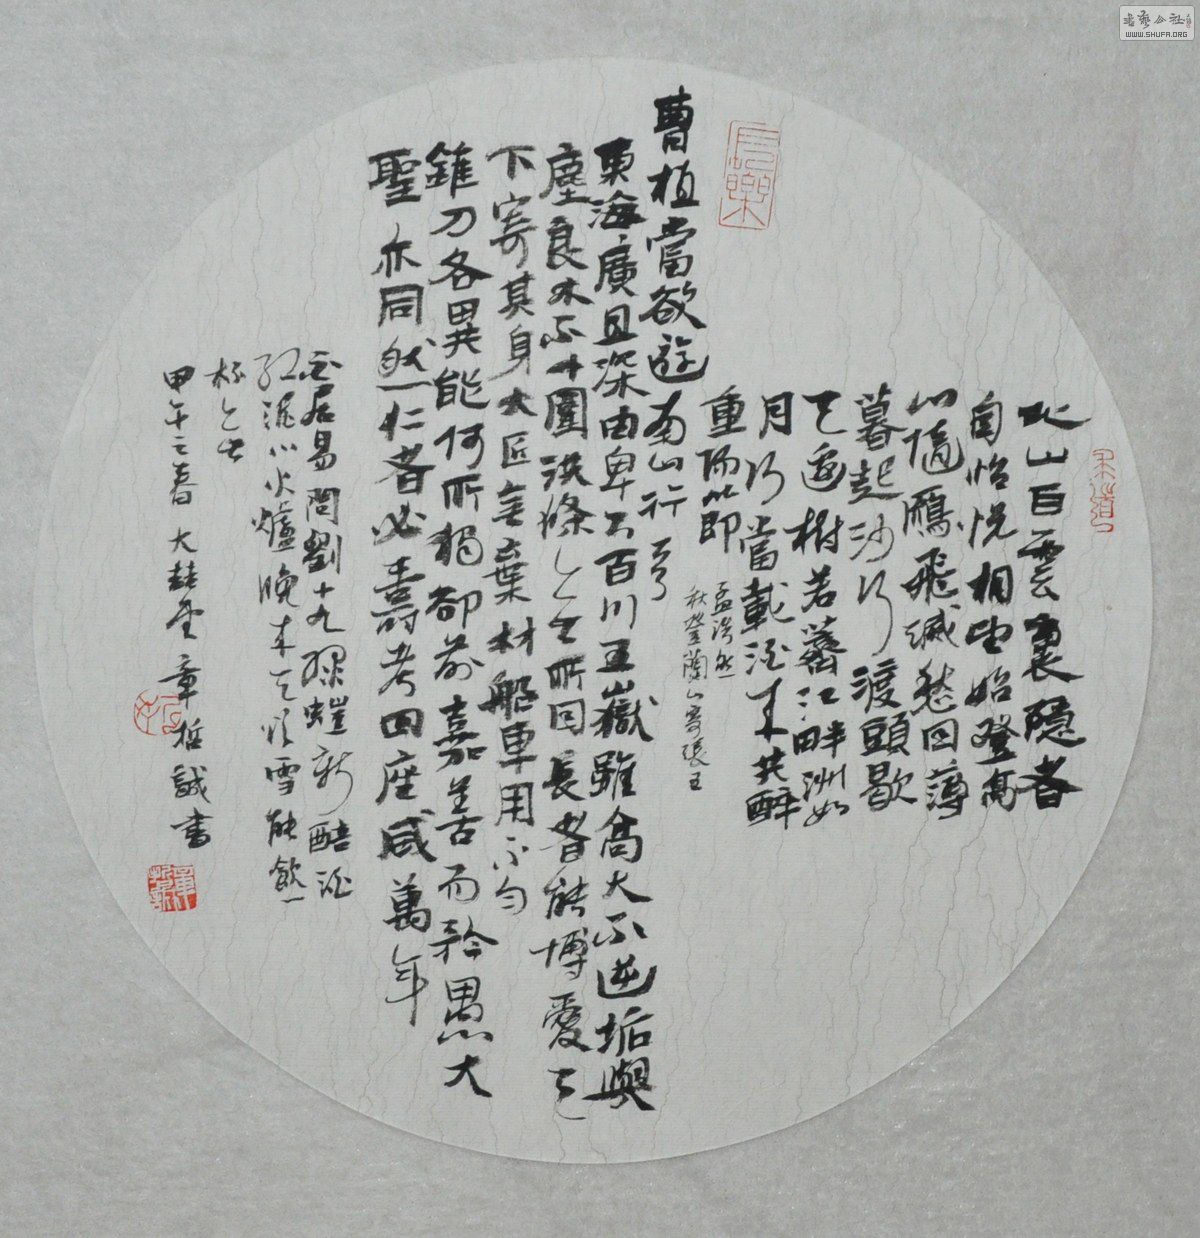 北山白雲裏隱者
自怡悦相望始登高
心隨鴈飛滅愁因薄
暮起沙行渡頭歇
天邊樹若薺江畔洲如
月何當載酒来共醉
重陽節
孟浩然
秋登蘭山寄張五
曹植當欲遊南山行
東海廣且深由卑下百川五嶽雖高大不逆垢與
塵良木不十圍洪條無所因長者能博愛天
下寄其身大匠無棄材船車用不勻
錐刀各異能何所獨却前嘉善而矜愚大
聖亦同然仁者必壽考四座咸萬年
白居易問劉十九緑螘新醅酒
紅泥小火爐晚来天欲雪能飲一
杯無
甲午之春大堂章哲誠書
長樂
書藝公社
WWW.SHUFA.ORG